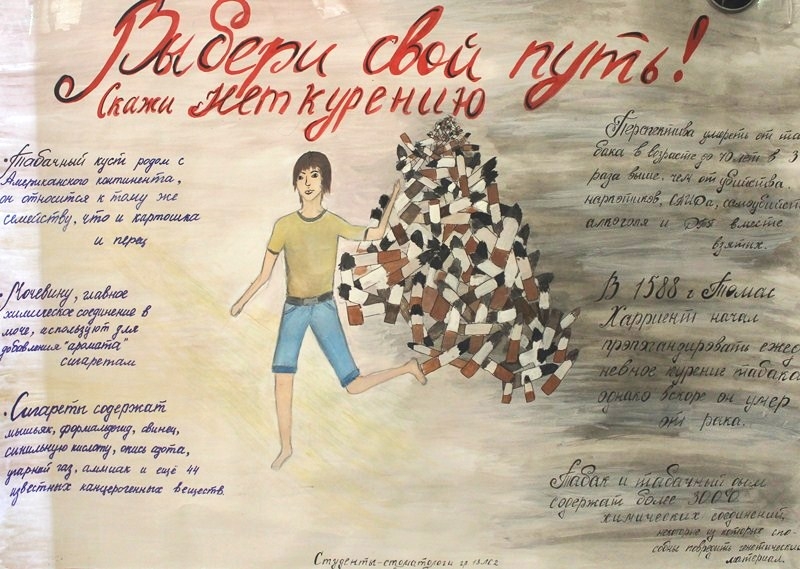 Выбери свой путь!
Скажи Нет курению
• Табачный куст родом с
Американского континента,
он относится к тому же
семейству, что и картошка
и перец
• Мочевину, главное
химическое соединение в
моче, используют для
добовления "аромата"
сигаретам
• Сигареты содержат
мышьяк, формальдегид, свинец,
синильную кислоту, окись азота,
угарный газ, аммиак и ещё 44
известных канцерогенных веществ.
Перспектива умереть от та
бака в возрасте до 70 лет в 3
раза выше, чем от убийства,
наркотиков, СПИДа, самоубийст
алкоголя и ДТП вместе
взятых.
В 1588 г Томас
Харриент начал
пропагандировать ежед
невное курение табака
однако вскоре он умер
от рака.
Табак и табачный дым
содержат более 3000
химических соединений,
некоторые из которых спо-
собны повредить генетический
материал.
Студенты-стоматологи гр